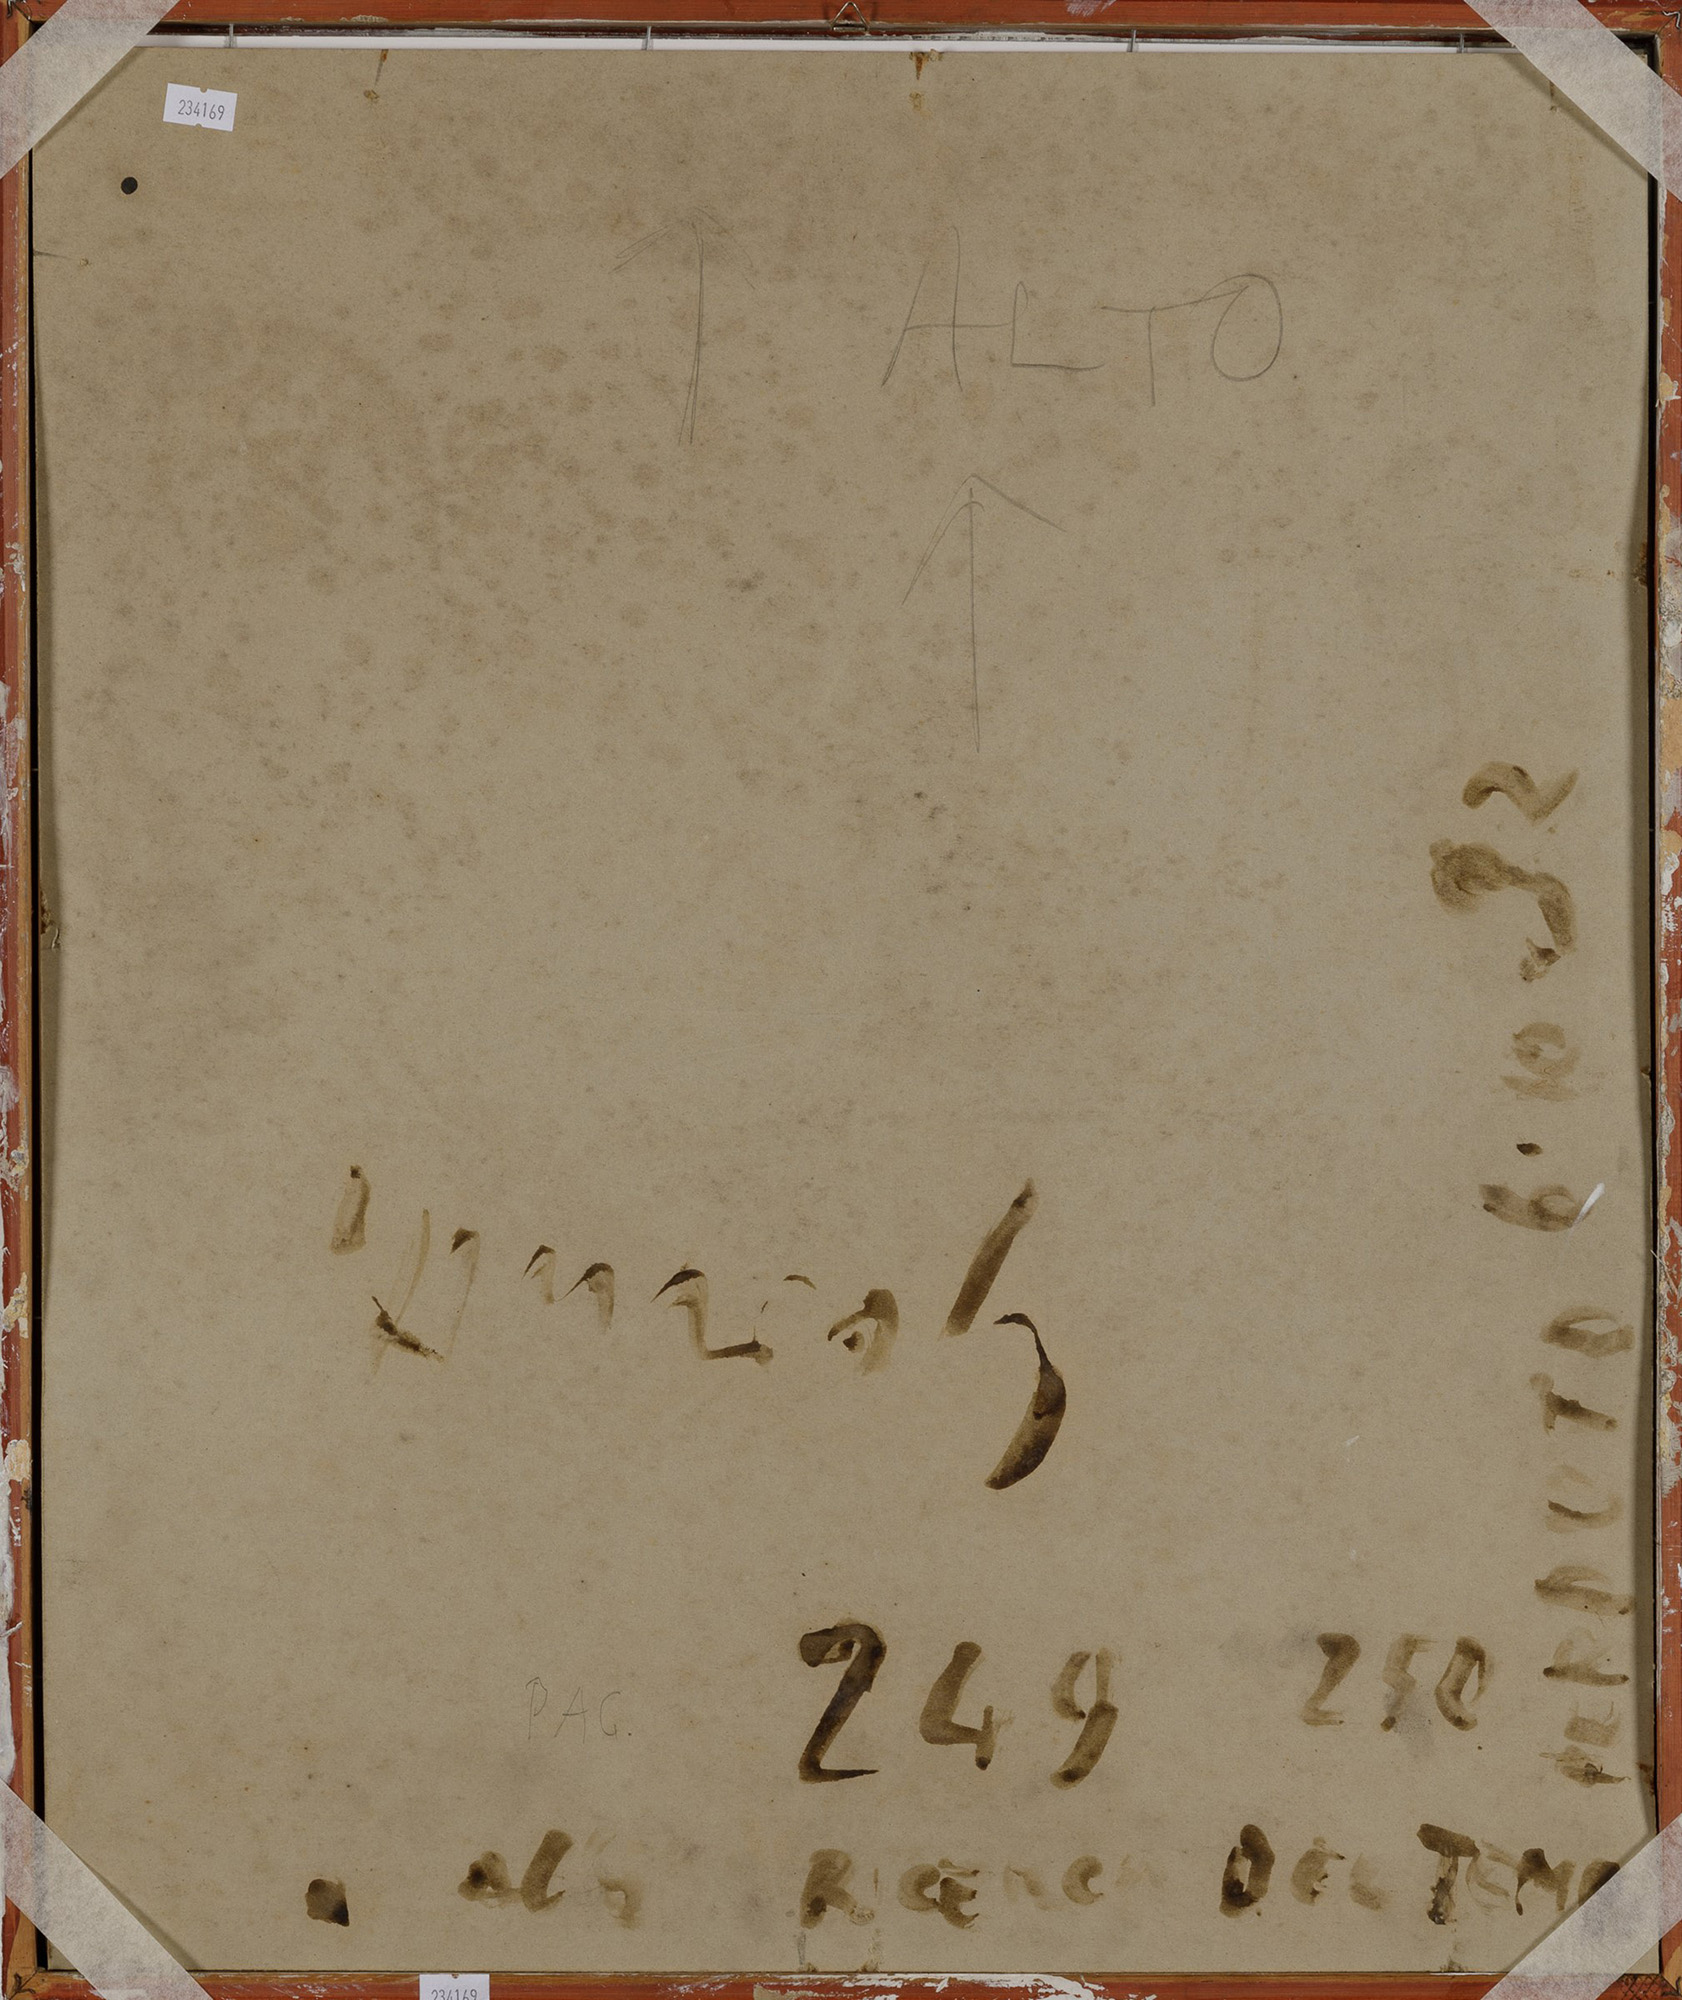 234169
ALTO
PAG. 249 250
ALLA RICERCA DEL TEMPO
PERDUTO 6.10.92
234169